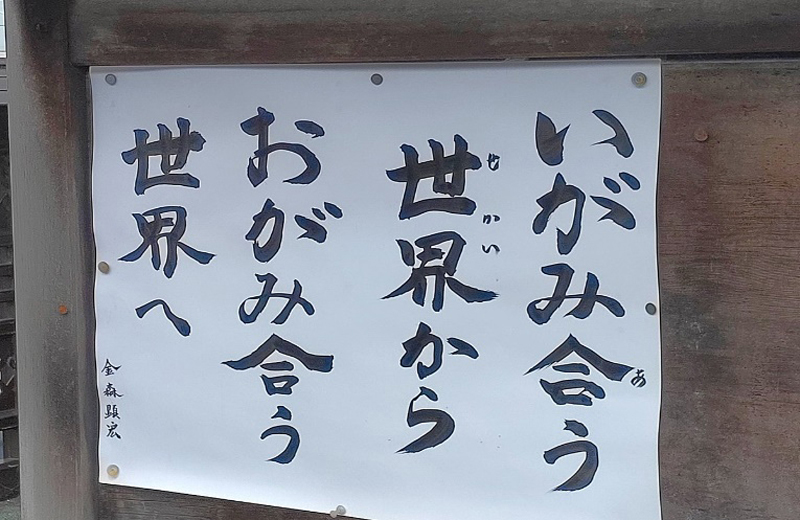 いがみ合う
あ
世界から
せかい
おがみ合う
世界へ
金森顕宏